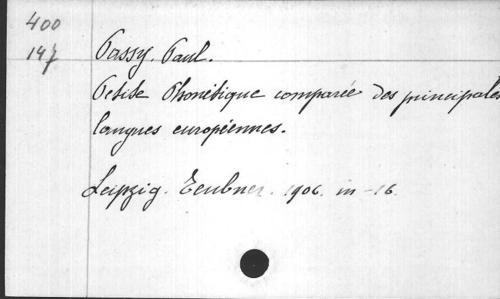 400
147
Passy. Paul.
Petite Phonétique comparée des principales
langues européennes.
Leipzig. Teubner. 1906. in-16.